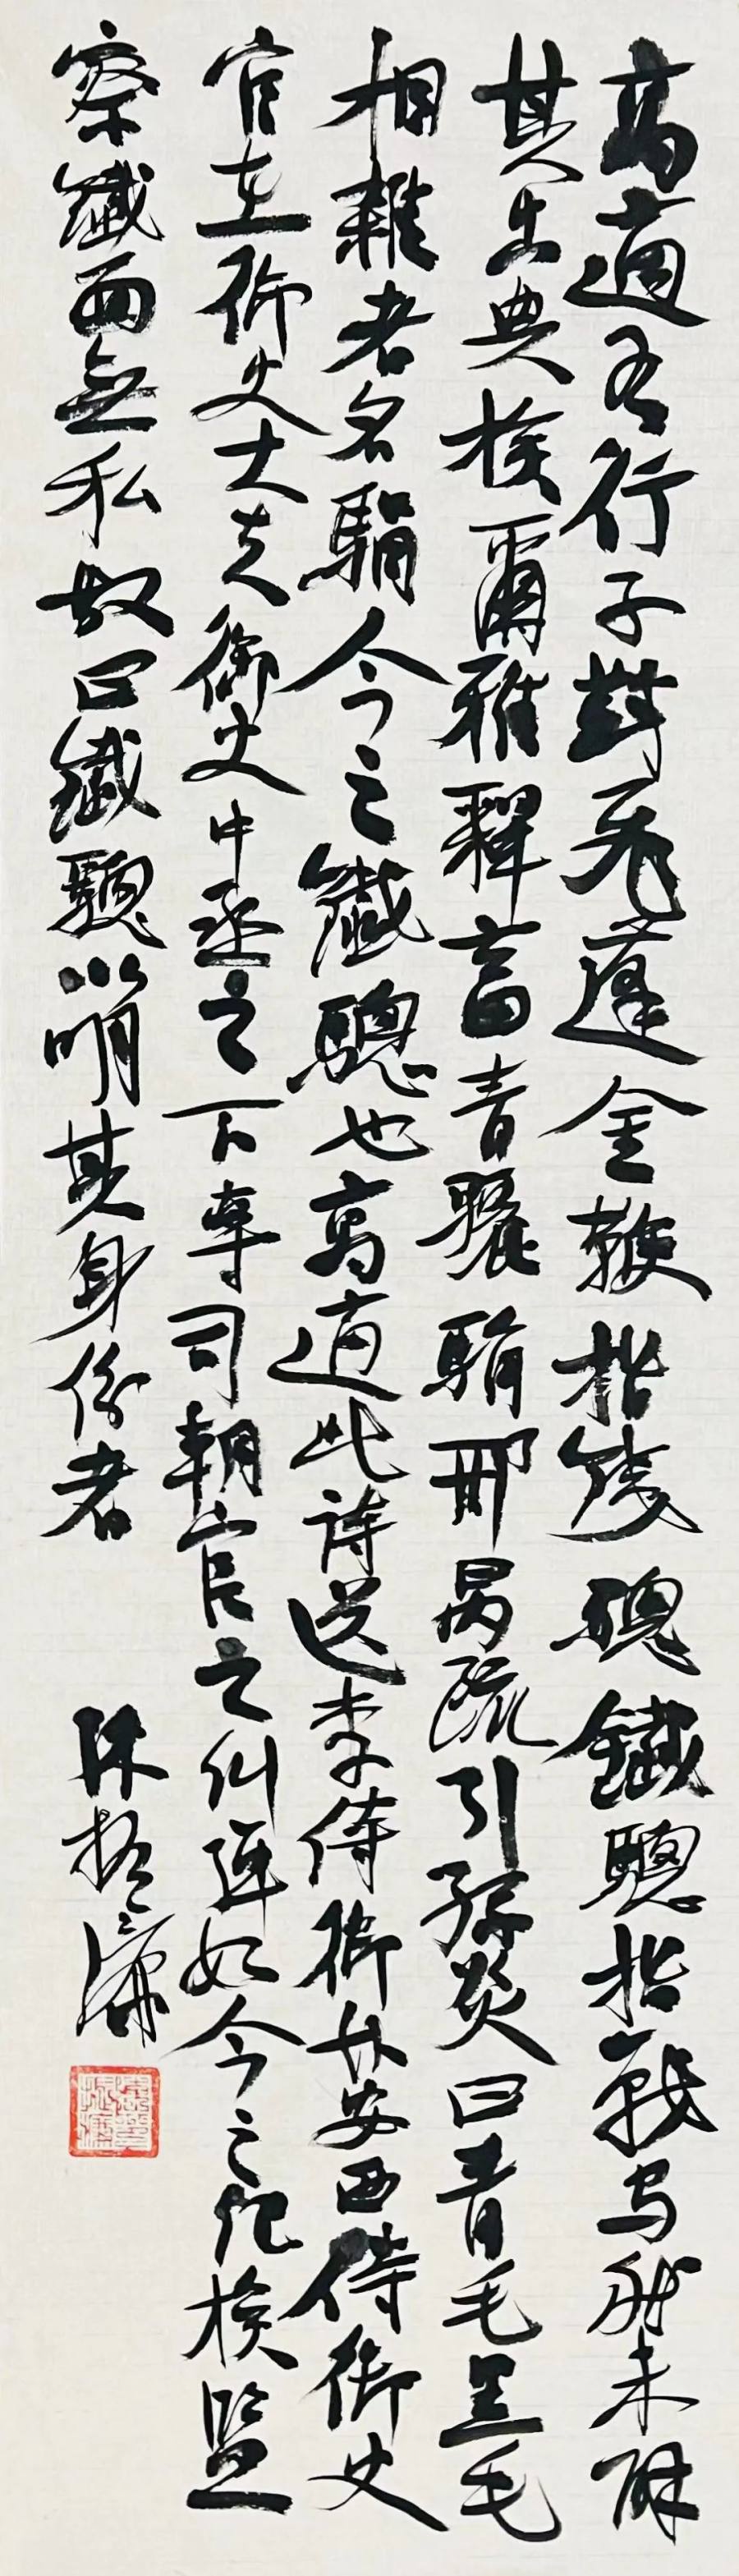 高適有行子對飛蓬金鞭指鐵驄鐵驄指戰馬然未解
其出典檢爾雅釋畜青驪駽邢昺疏引孫炎曰青毛黑毛
相雜者名駽今之鐵驄也高適此詩送李侍御赴安西侍御史
官在御史大夫御史中丞之下專司朝官之糾如今之紀檢監
察鐵面無私故曰鐵驄以明其身份者
陳振濂